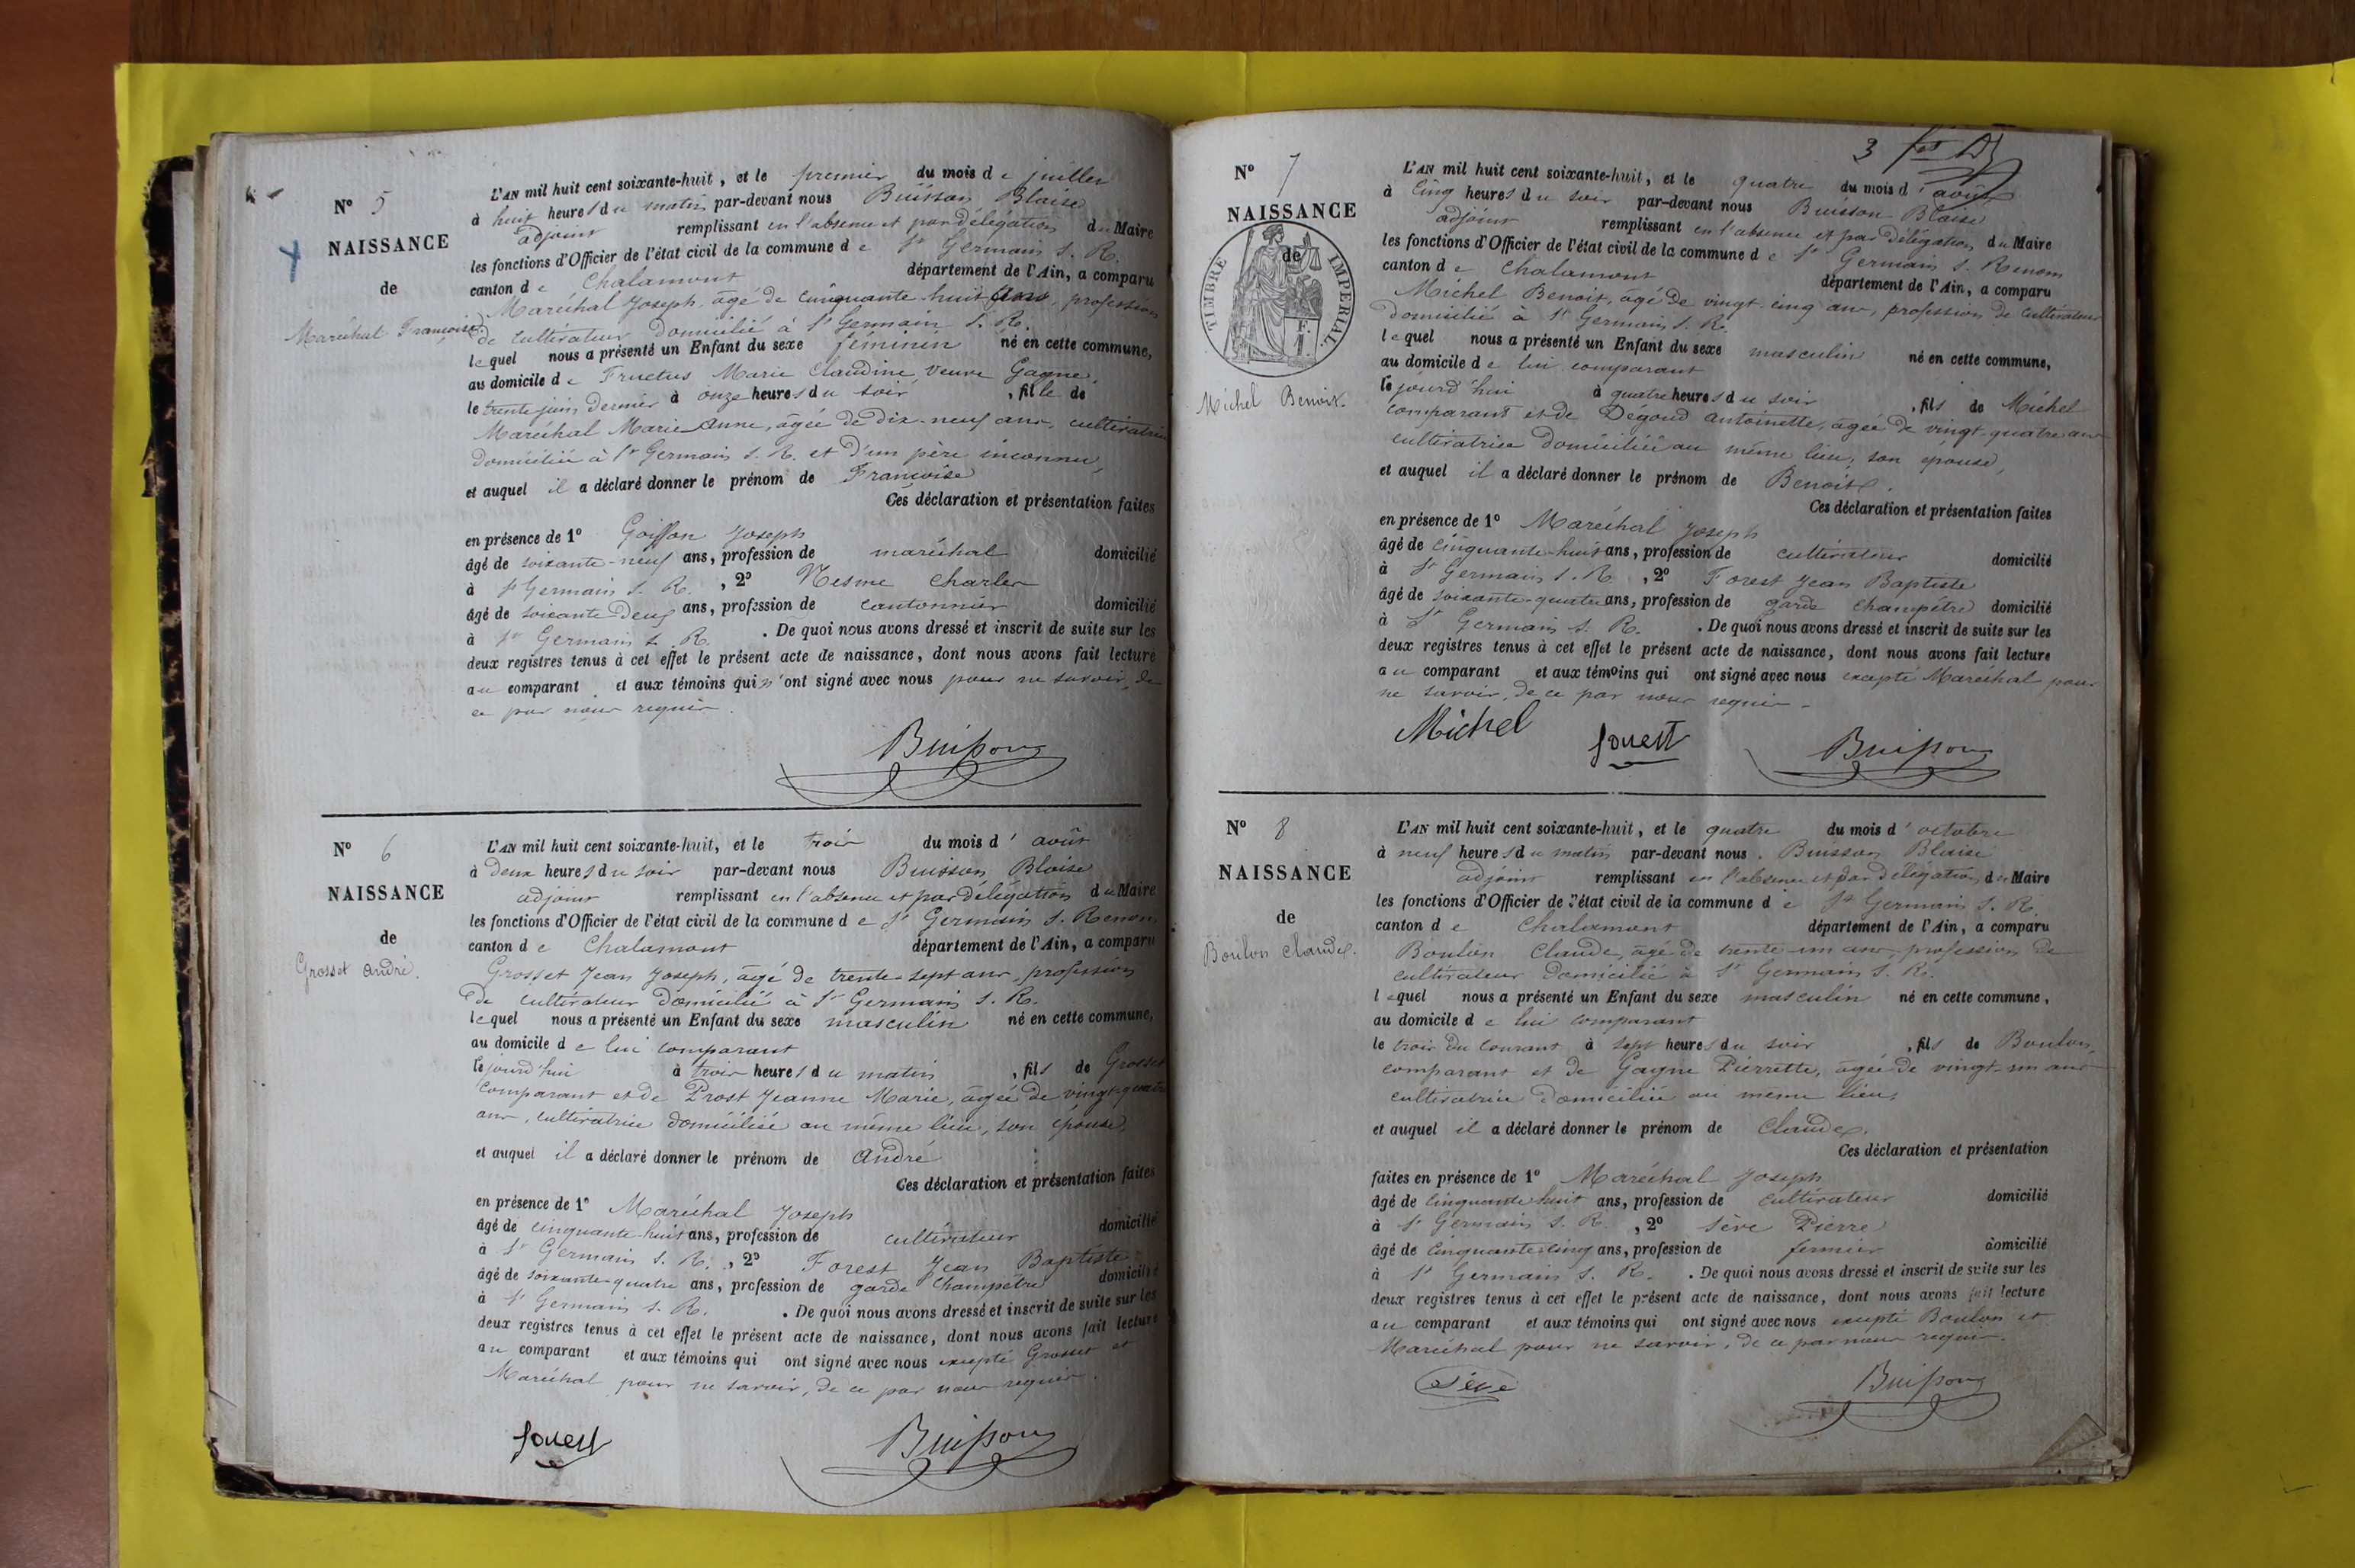 N° 5
NAISSANCE
de
Maréchal Françoise
L'AN mil huit cent soixante-huit, et le premier du mois de juillet
à huit heures du matin par-devant nous Buisson Blaise
adjoint remplissant en l'absence et par délégation du Maire
les fonctions d'Officier de l'état civil de la commune de St Germain s. R.
canton de Chalamont département de l'Ain, a comparu
Maréchal Joseph, âgé de cinquante-huit ans, profession
de cultivateur domicilié à St Germain s. R.
lequel nous a présenté un Enfant du sexe féminin né en cette commune,
au domicile de Fructus Marie Claudine, veuve Gagne,
le trente juin dernier à onze heures du soir, fille de
Maréchal Marie Anne, âgée de dix-neuf ans, cultivatrice
domiciliée à St Germain s. R. et d'un père inconnu,
et auquel il a déclaré donner le prénom de Françoise
Ces déclaration et présentation faites
en présence de 1° Goiffon Joseph
âgé de soixante-neuf ans, profession de maréchal domicilié
à St Germain s. R., 2° Nesme Charles
âgé de soixante-deux ans, profession de cantonnier domicilié
à St Germain s. R. . De quoi nous avons dressé et inscrit de suite sur les
deux registres tenus à cet effet le présent acte de naissance, dont nous avons fait lecture
au comparant et aux témoins qui n'ont signé avec nous pour ne savoir, de
ce par nous requis.
Buisson
N° 6
NAISSANCE
de
Grosset André.
L'AN mil huit cent soixante-huit, et le trois du mois d'août
à deux heures du soir par-devant nous Buisson Blaise
adjoint remplissant en l'absence et par délégation du Maire
les fonctions d'Officier de l'état civil de la commune de St Germain s. Renon
canton de Chalamont département de l'Ain, a comparu
Grosset Jean Joseph, âgé de trente-sept ans, profession
de cultivateur domicilié à St Germain s. R.
lequel nous a présenté un Enfant du sexe masculin né en cette commune,
au domicile de lui comparant
cejourd'hui à trois heures du matin, fils de Grosset
comparant et de Prost Jeanne Marie, âgée de vingt-quatre
ans, cultivatrice domiciliée au même lieu, son épouse,
et auquel il a déclaré donner le prénom de André
Ces déclaration et présentation faites
en présence de 1° Maréchal Joseph
âgé de cinquante-huit ans, profession de cultivateur domicilié
à St Germain s. R., 2° Forest Jean Baptiste
âgé de soixante-quatre ans, profession de garde champêtre domicilié
à St Germain s. R. . De quoi nous avons dressé et inscrit de suite sur les
deux registres tenus à cet effet le présent acte de naissance, dont nous avons fait lecture
au comparant et aux témoins qui ont signé avec nous excepté Grosset et
Maréchal pour ne savoir, de ce par nous requis.
forest
Buisson
3
N° 7
NAISSANCE
de
TIMBRE IMPERIAL
1 F.
Michel Benoit.
L'AN mil huit cent soixante-huit, et le quatre du mois d'août
à cinq heures du soir par-devant nous Buisson Blaise
adjoint remplissant en l'absence et par délégation du Maire
les fonctions d'Officier de l'état civil de la commune de St Germain s. Renom
canton de Chalamont département de l'Ain, a comparu
Michel Benoit, âgé de vingt-cinq ans, profession de cultivateur
domicilié à St Germain s. R.
lequel nous a présenté un Enfant du sexe masculin né en cette commune,
au domicile de lui comparant
cejourd'hui à quatre heures du soir, fils de Michel
comparant et de Degoud Antoinette, âgée de vingt-quatre ans
cultivatrice domiciliée au même lieu, son épouse,
et auquel il a déclaré donner le prénom de Benoit.
Ces déclaration et présentation faites
en présence de 1° Maréchal Joseph
âgé de cinquante-huit ans, profession de cultivateur domicilié
à St Germain s. R., 2° Forest Jean Baptiste
âgé de soixante-quatre ans, profession de garde champêtre domicilié
à St Germain s. R. . De quoi nous avons dressé et inscrit de suite sur les
deux registres tenus à cet effet le présent acte de naissance, dont nous avons fait lecture
au comparant et aux témoins qui ont signé avec nous excepté Maréchal pour
ne savoir, de ce par nous requis.
Michel
forest
Buisson
N° 8
NAISSANCE
de
Boulon Claude.
L'AN mil huit cent soixante-huit, et le quatre du mois d'octobre
à neuf heures du matin par-devant nous Buisson Blaise
adjoint remplissant en l'absence et par délégation du Maire
les fonctions d'Officier de l'état civil de la commune de St Germain s. R.
canton de Chalamont département de l'Ain, a comparu
Boulon Claude, âgé de trente-un ans, profession de
cultivateur domicilié à St Germain s. R.
lequel nous a présenté un Enfant du sexe masculin né en cette commune,
au domicile de lui comparant
le trois du courant à sept heures du soir, fils de Boulon,
comparant et de Gagne Pierrette, âgée de vingt-un ans
cultivatrice domiciliée au même lieu,
et auquel il a déclaré donner le prénom de Claude.
Ces déclaration et présentation
faites en présence de 1° Maréchal Joseph
âgé de cinquante-huit ans, profession de cultivateur domicilié
à St Germain s. R., 2° Sève Pierre
âgé de cinquante-cinq ans, profession de fermier domicilié
à St Germain s. R. . De quoi nous avons dressé et inscrit de suite sur les
deux registres tenus à cet effet le présent acte de naissance, dont nous avons fait lecture
au comparant et aux témoins qui ont signé avec nous excepté Boulon et
Maréchal pour ne savoir, de ce par nous requis.
Sève
Buisson